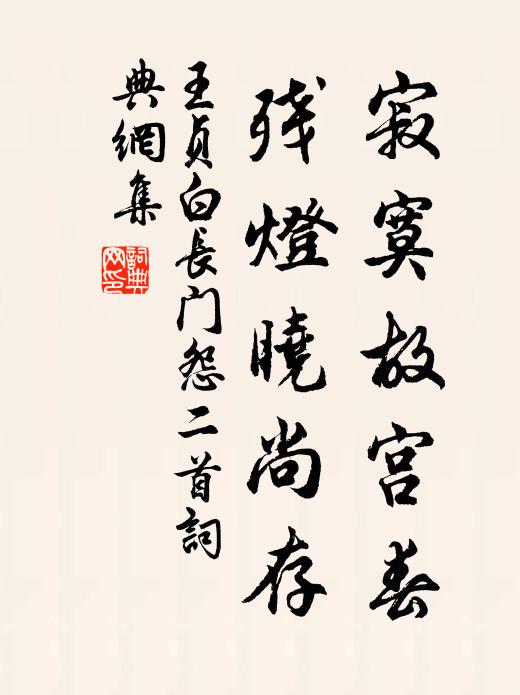 寂寞故宫春
残燈曉尚存
王貞白長门怨二首詞
典網集
詞典网印